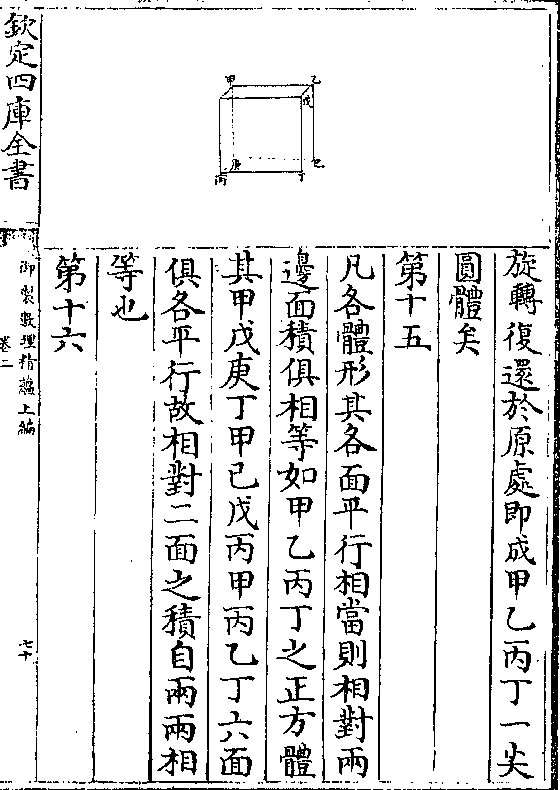 甲
乙
戊
庚
已
丙
丁
旋轉復還於原處即成甲乙丙丁一尖
圓體矣
第十五
凡各體形其各面平行相當則相對兩
邊面積俱相等如甲乙丙丁之正方體
其甲戊庚丁甲已戊丙甲丙乙丁六面
俱各平行故相對二面之積自兩兩相
等也
第十六
欽定四庫全書
御製數理精蘊上編
卷二
七十